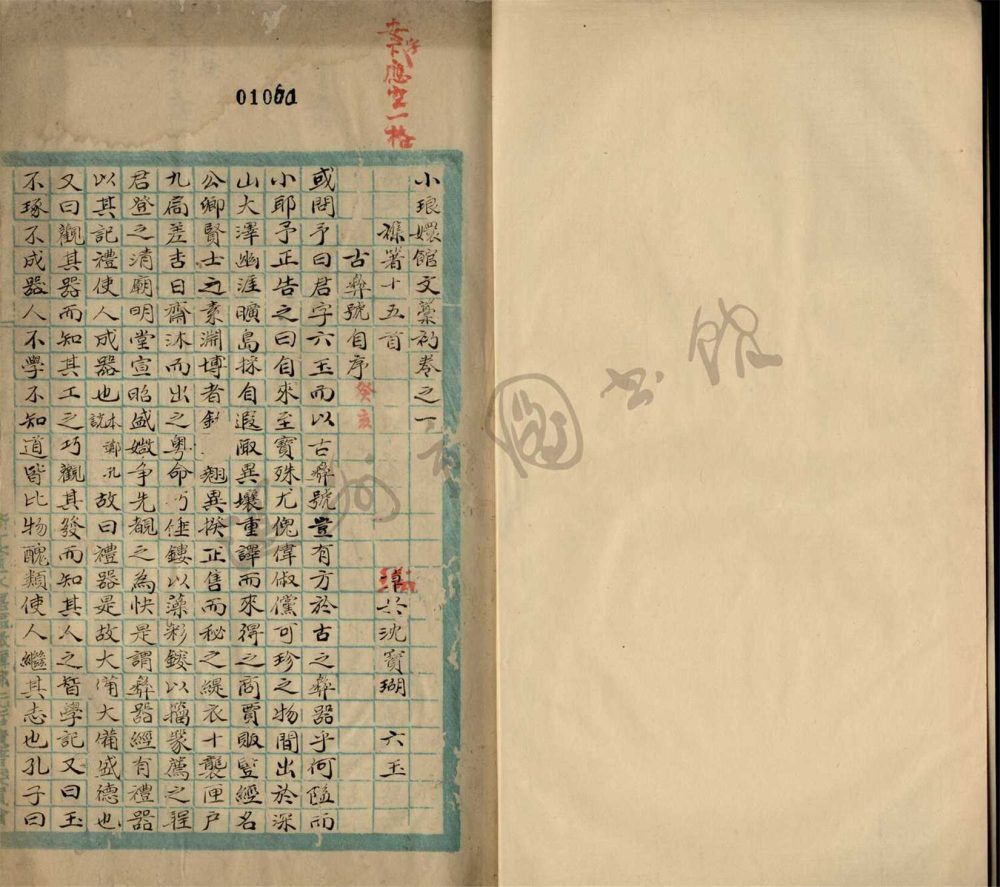 安下應空一格
01061
小琅嬛館文藳初卷之一
襍箸十五首 淳於沈寶瑚 六玉
古彝號自序 癸亥
或問予曰君字六玉而以古彝號豈有方於古之彝器乎何隘而
小耶予正告之曰自來至寶殊尤傀偉俶儻可珍之物間出於深
山大澤幽涯曠島採自遐陬異壤重譯而來得之商賈販豎經名
公卿賢士之素淵博者 翹異揆正售而秘之緹衣十襲匣戶
九扃差吉日齋沐而出之粵命 倕鏤以藻彩鏤以籀篆薦之程
君登之清廟明堂宣昭盛媺爭先覩之為快是謂彝器經有禮器
以其記禮使人成器也本鄭孔說故曰禮器是故大備大備盛德也
又曰觀其器而知其工之巧觀其發而知其人之智學記又曰玉
不琢不成器人不學不知道皆比物醜類使人繼其志也孔子曰
圖書館